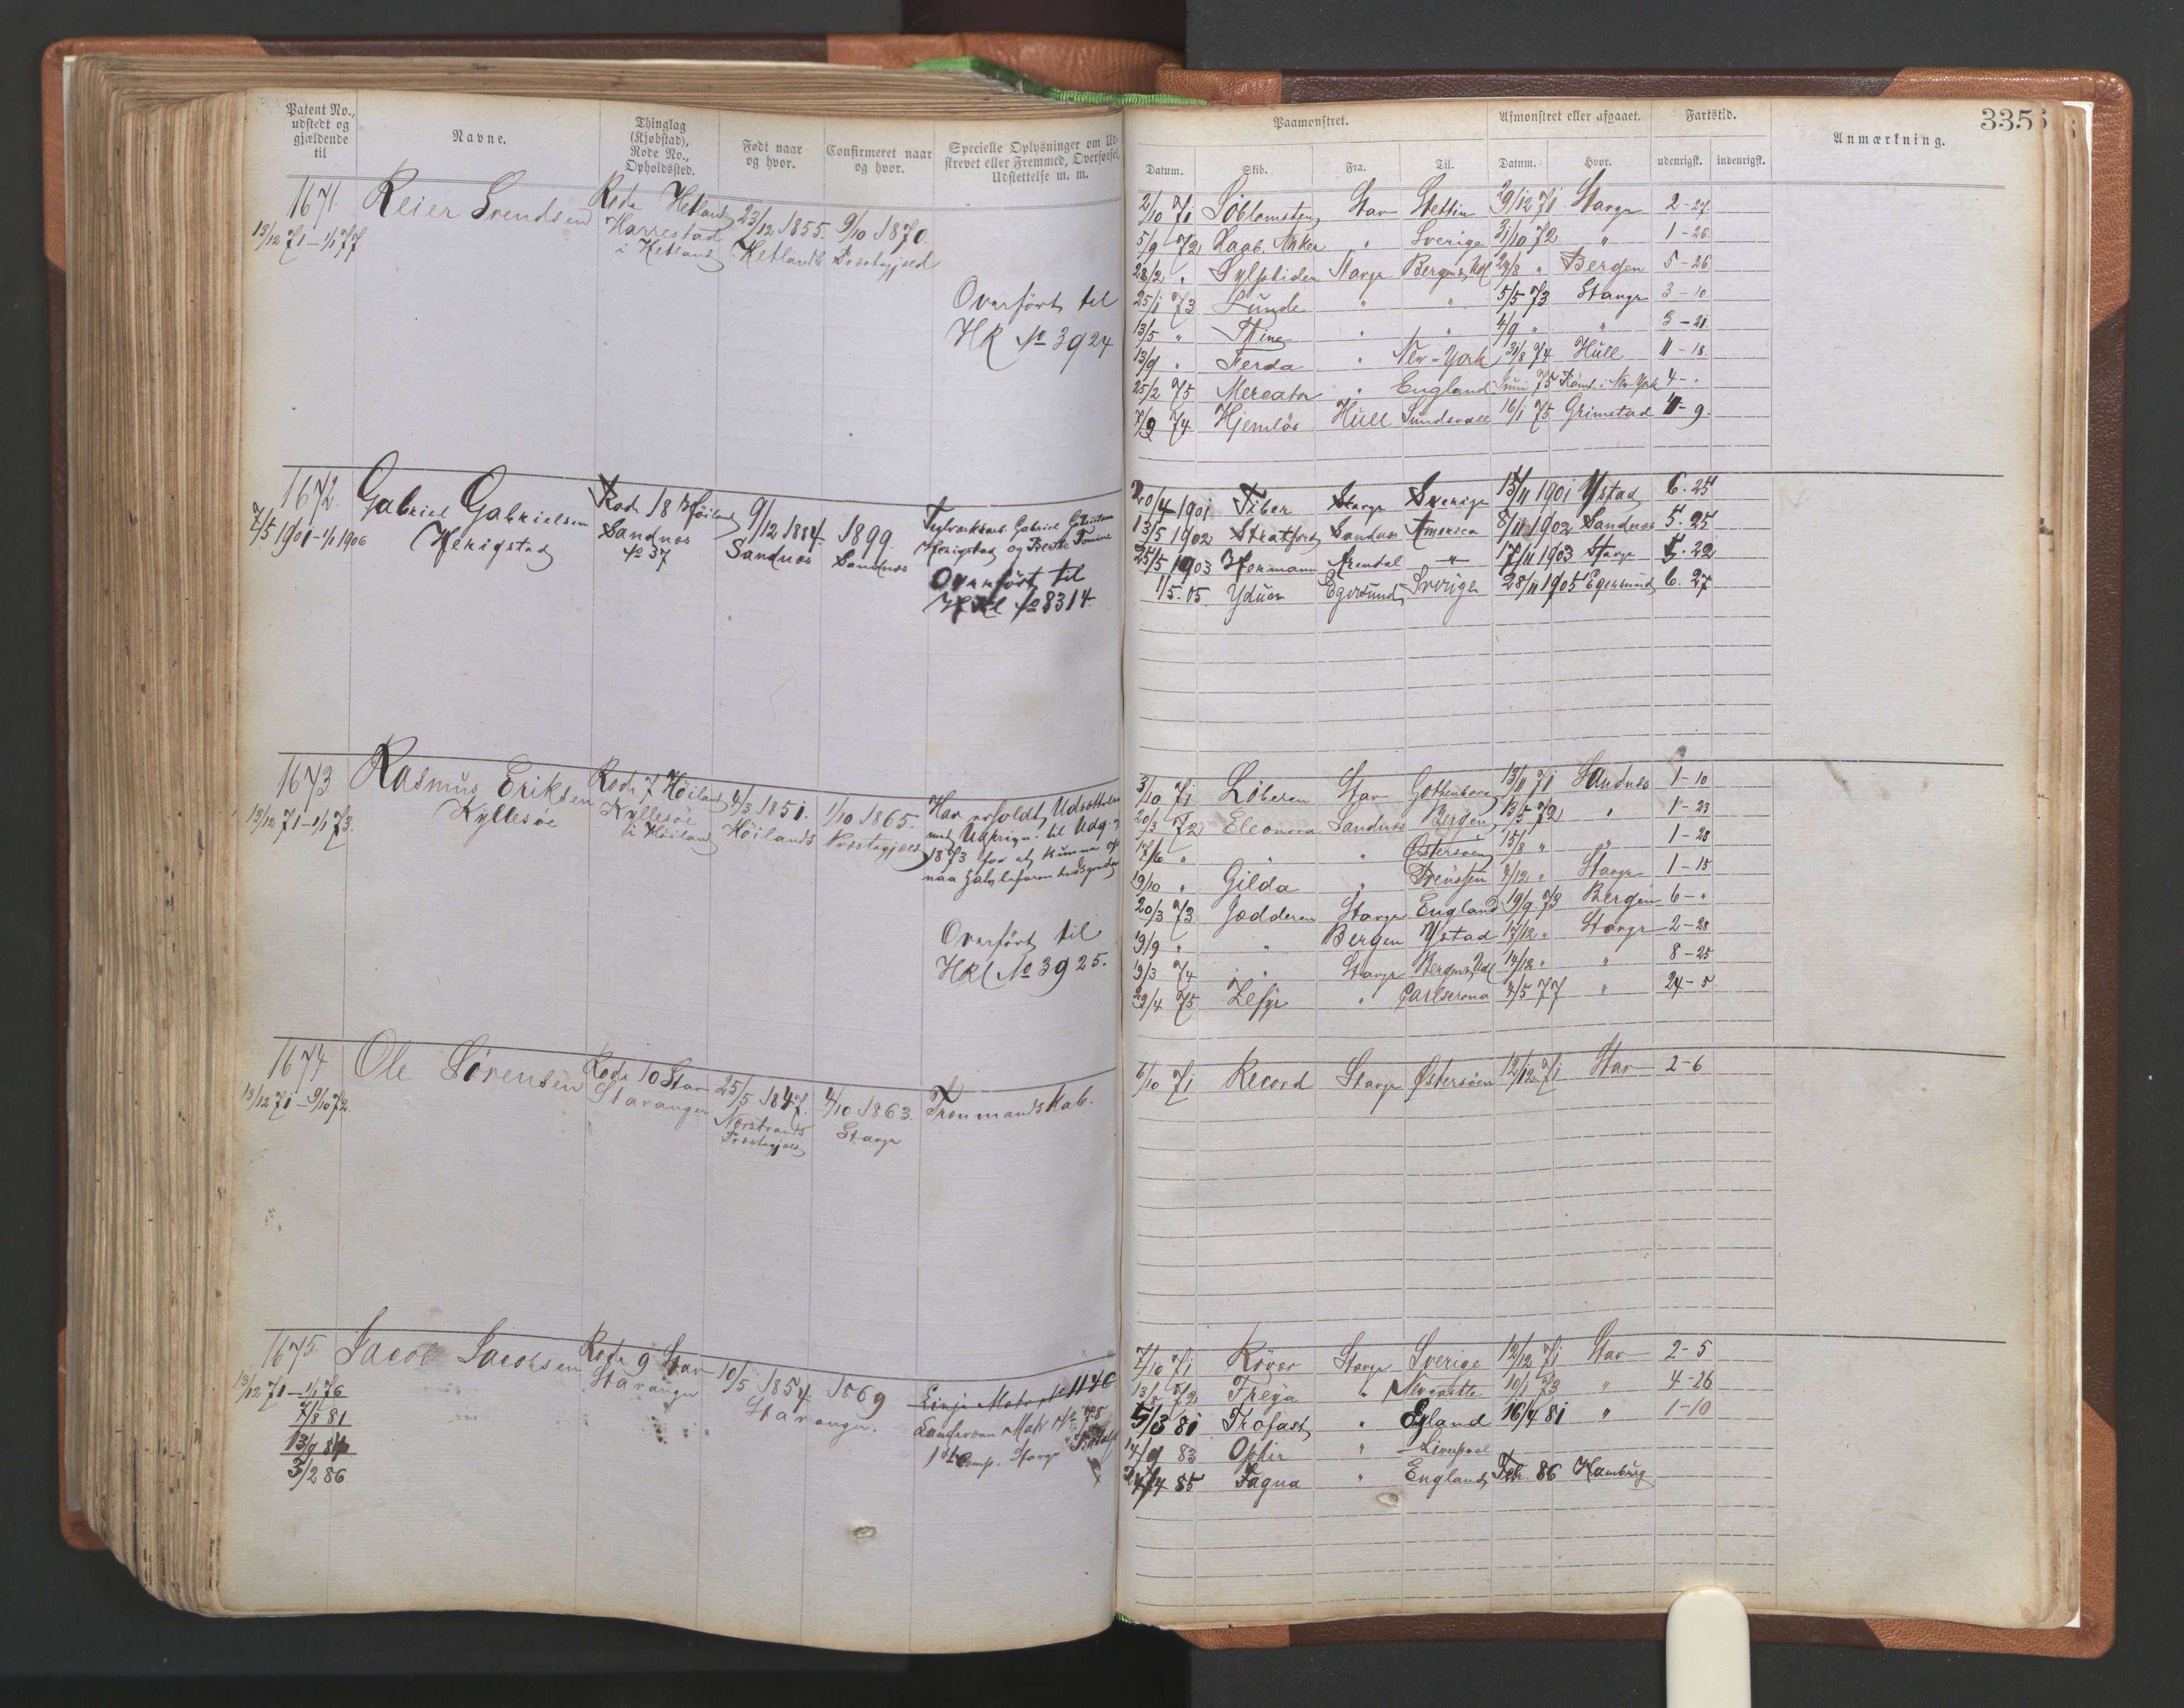 Patent No.,
udstedt og
gjældende
til
Navne.
Thinglag
(Kjøbstad),
Rode No.,
Opholdssted.
Født naar
og hvor.
Confirmeret naar
og hvor.
Specielle Oplysninger om Ud-
skrevet eller Fremmed, Overførsel,
Udslettelse m. m.
1671.
13/12 71 – 1/1 77
Reier Svendsen
Rode Hetland
Harrestad
i Hetland
23/12 1855.
Hetlands
9/10 1870.
Præstegjæld
Overført til
HR No 3924
1672.
7/5 1901 – 1/1 1906
Gabriel Gabrielsen
Herigstad
Rode 18 Høiland
Sandnæs
No 37
9/12 1884.
Sandnæs
1899
Sandnæs
Teglværksarb. Gabriel Gabrielsen
Herigstad og Berthe Tomine
Overført til
HRl No 8314.
1673
13/12 71 – 1/1 73.
Rasmus Eriksen
Kyllesøe
Rode 7 Høiland
Kyllesøe
i Høiland
4/3 1851.
Høilands
1/10 1865.
Præstegjæld
Har erholdt Udsættelse
med Udskrivn. til Udg. af
1873 for at kunne op-
naa
Overført til
HRl No 3925.
1674
13/12 71 – 9/10 72.
Ole Sørensen
Rode 10 Stav
Stavanger
25/5 1847.
Nerstrands
Præstegjæld
4/10 1863.
Stavgr
1675.
13/12 71 – 1/1 76
7/3 81
13/9 84
3/2 86.
Jacob Jacobsen
Rode 9 Stav
Stavanger
10/5 1854.
Stavanger.
1869
Linje Matr. No 1146
Landværn Matr No 78
1ste Comp. Stavgr
3356
Paamønstret.
Afmønstret eller afgaaet.
Fartstid.
Anmærkning.
Datum.
Skib.
Fra.
Til.
Datum.
Hvor.
udenrigsk.
indenrigsk.
2/10 71 Søblomsten Stav Stettin 29/12 71 Stavgr 2 – 27
5/9 72 Haab. Anker " Sverige 31/10 72 " 1 – 26
28/2 " Sylphiden Stavgr Bergen, Udl 24/8 " Bergen 5 – 26
25/1 73 Lunde " " 5/5 73 Stavgr 3 – 10
13/5 " Thine " " 4/9 " " 3 – 21
13/9 " Ferda " New-York 31/8 74 Hull 11 – 18.
25/2 75 Mercator " England Juni 75 Rømt i New-York 4 – "
7/9 74 Hjemløs Hull Sundsvall 16/1 75 Grimstad 4 – 9.
20/4 1901 Tiber Stavgr Sverige 15/11 1901 Ystad 6. 25
13/5 1902 Stratford Sandnæs Amerika 8/11 1902 Sandnæs 5. 25
25/5 1903 Hermann Arendal – " – 17/11 1903 Stavgr 5. 22
1/5. 05. Yduen Egersund Sverige 28/11 1905 Egersund 6. 27
3/10 71 Løberen Stav Gottenborg 13/11 71 Sandnæs 1 – 10
20/3 72 Eleonora Sandnæs Bergen 13/5 72 " 1 – 23
17/6 " " " Østersøen 15/8 " " 1 – 28
19/10 " Gilda " Preussen 4/12 " Stavgr 1 – 15
20/3 73 Jædderen Stavgr England 19/9 73 Bergen 6 – "
19/9 " " Bergen Ystad 17/12 " Stavgr 2 – 28
19/3 74 " Stavgr Bergen, Udl 14/12 " " 8 – 25
29/4 75 Zefyr " Carlscrona 4/5 77 " 24 – 5
6/10 71 Record Stavgr Østersøen 12/12 71 Stav 2 – 6
7/10 71 Røver Stavgr Sverige 12/12 71 Stav 2 – 5
13/8 72 Freya " Newcastle 10/1 73 " 4 – 26
5/3 81 Trofast " England 16/4 81 " 1 – 10
14/9 83 Ophir " Liverpool
24/4 85 Fagna " England Febr. 86 Hamburg